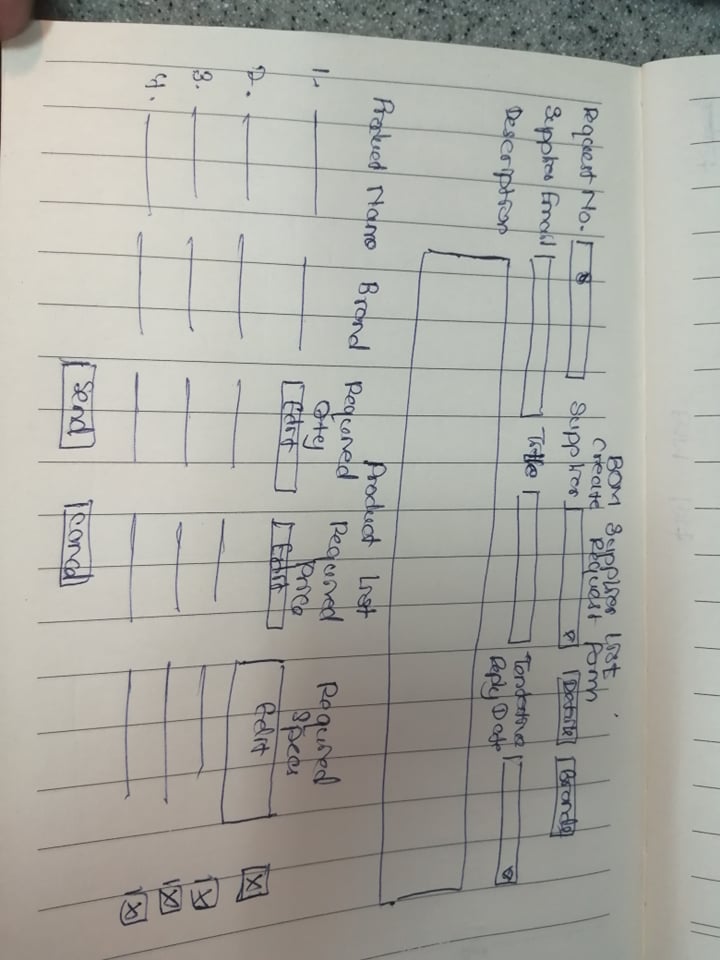 BOM Supplier List
Create Request Form
Request No. Supplier Details Brands
Supplier Email Title Tendering
Reply Date
Description
Product List
Product Name Brand Required Qty Required Price Required Specs
1. Edit Edit Edit X
2. X
3. X
4. X
Send Cancel